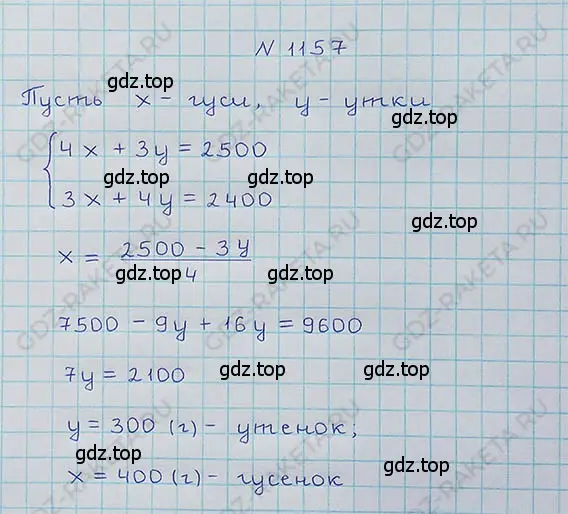 N 1157
gdz.top
Пусть x - гуси, y - утки
gdz.top
4x + 3y = 2500
gdz.top gdz.top
3x + 4y = 2400
gdz.top
x = 2500 - 3y
gdz.top 4 gdz.top
7500 - 9y + 16y = 9600
7y = 2100 gdz.top gdz.top
y = 300 (г) - утенок;
gdz.top gdz.top
x = 400 (г) - гусенок
GDZ-RAKETA.RU
GDZ-RAKETA.RU
GDZ-RAKETA.RU
GDZ-RAKETA.RU